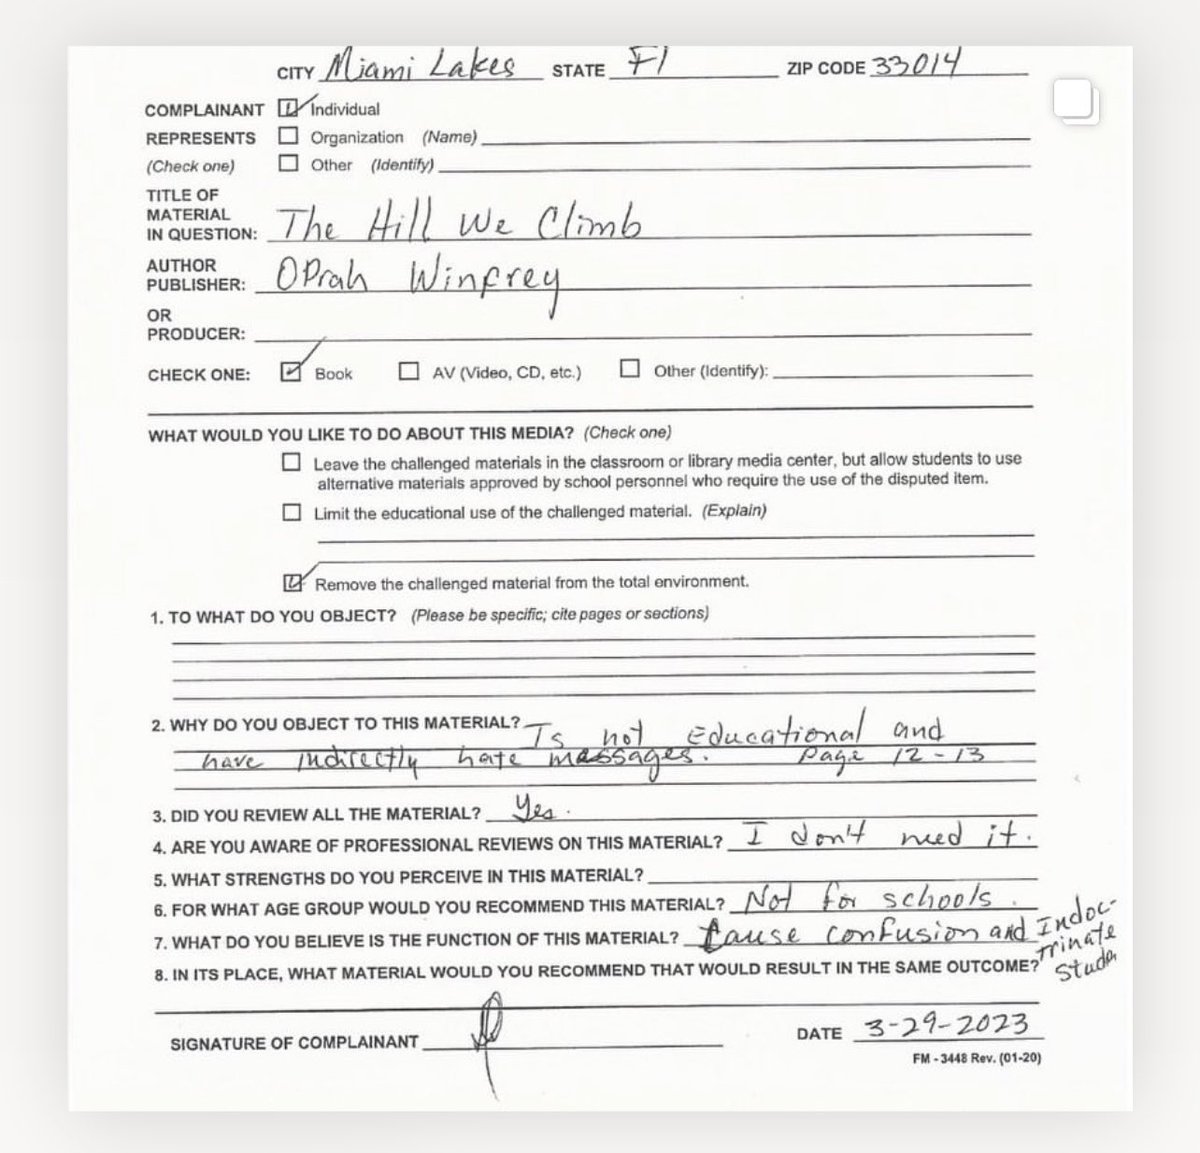 CITY Miami Lakes STATE Fl ZIP CODE 33014
COMPLAINANT Individual
REPRESENTS Organization (Name)
(Check one) Other (Identify)
TITLE OF
MATERIAL
IN QUESTION: The Hill We Climb
AUTHOR
PUBLISHER: Oprah Winfrey
OR
PRODUCER:
CHECK ONE: Book AV (Video, CD, etc.) Other (Identify):
WHAT WOULD YOU LIKE TO DO ABOUT THIS MEDIA? (Check one)
Leave the challenged materials in the classroom or library media center, but allow students to use
alternative materials approved by school personnel who require the use of the disputed item.
Limit the educational use of the challenged material. (Explain)
Remove the challenged material from the total environment.
1. TO WHAT DO YOU OBJECT? (Please be specific; cite pages or sections)
2. WHY DO YOU OBJECT TO THIS MATERIAL? Is not educational and
have indirectly hate massages. Page 12-13
3. DID YOU REVIEW ALL THE MATERIAL? Yes.
4. ARE YOU AWARE OF PROFESSIONAL REVIEWS ON THIS MATERIAL? I don't need it.
5. WHAT STRENGTHS DO YOU PERCEIVE IN THIS MATERIAL?
6. FOR WHAT AGE GROUP WOULD YOU RECOMMEND THIS MATERIAL? Not for schools.
7. WHAT DO YOU BELIEVE IS THE FUNCTION OF THIS MATERIAL? Cause confusion and Indoc-
trinate
8. IN ITS PLACE, WHAT MATERIAL WOULD YOU RECOMMEND THAT WOULD RESULT IN THE SAME OUTCOME?
SIGNATURE OF COMPLAINANT DATE 3-29-2023
FM - 3448 Rev. (01-20)